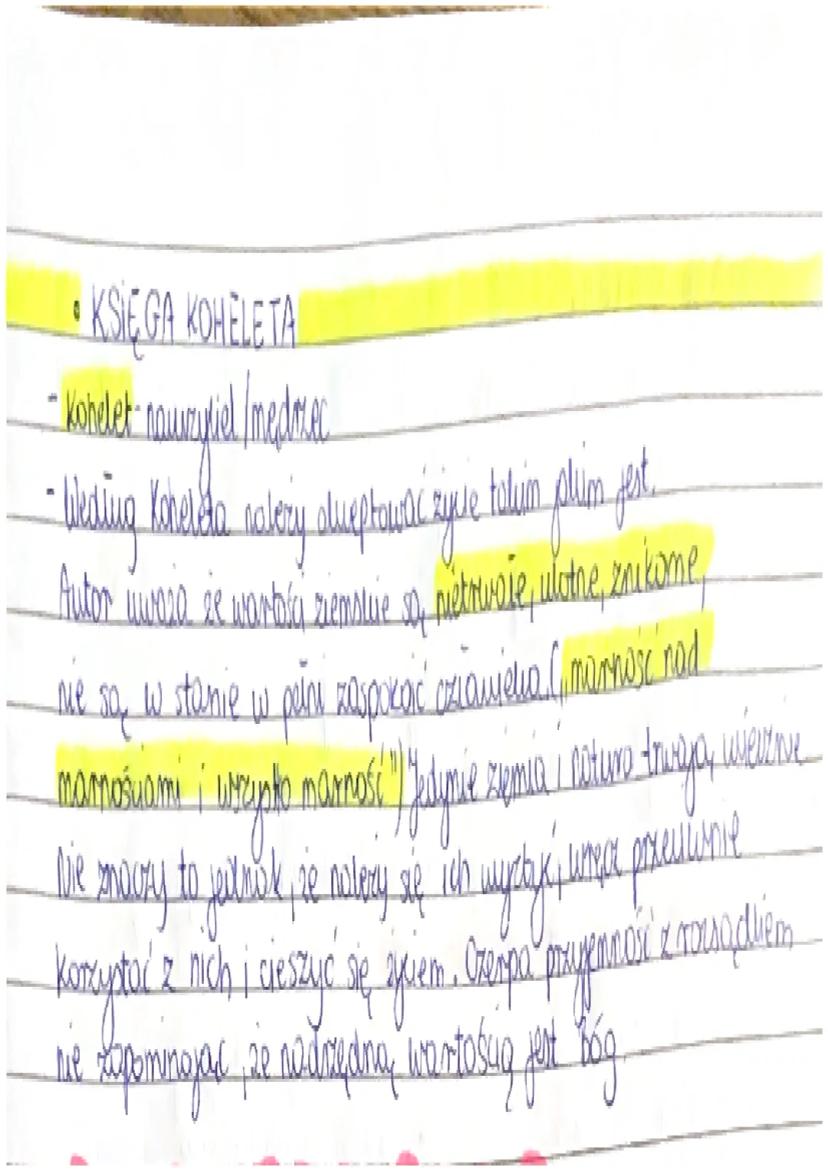 • KSIĘGA KOHELETA
- Kohelet - nauczyciel / mędrzec
- Według Koheleta należy akceptować życie takim jakim jest.
Autor uważa że wartości ziemskie są nietrwałe, ulotne, znikome,
nie są w stanie w pełni zaspokoić człowieka. („marność nad
marnościami i wszystko marność") Jedynie ziemia i natura trwają wiecznie
Nie znaczy to jednak, że należy się ich wyzbyć, wręcz przeciwnie
korzystać z nich i cieszyć się życiem. Czerpa przyjemność z rozsądkiem
nie zapominając, że nadrzędną wartością jest Bóg.